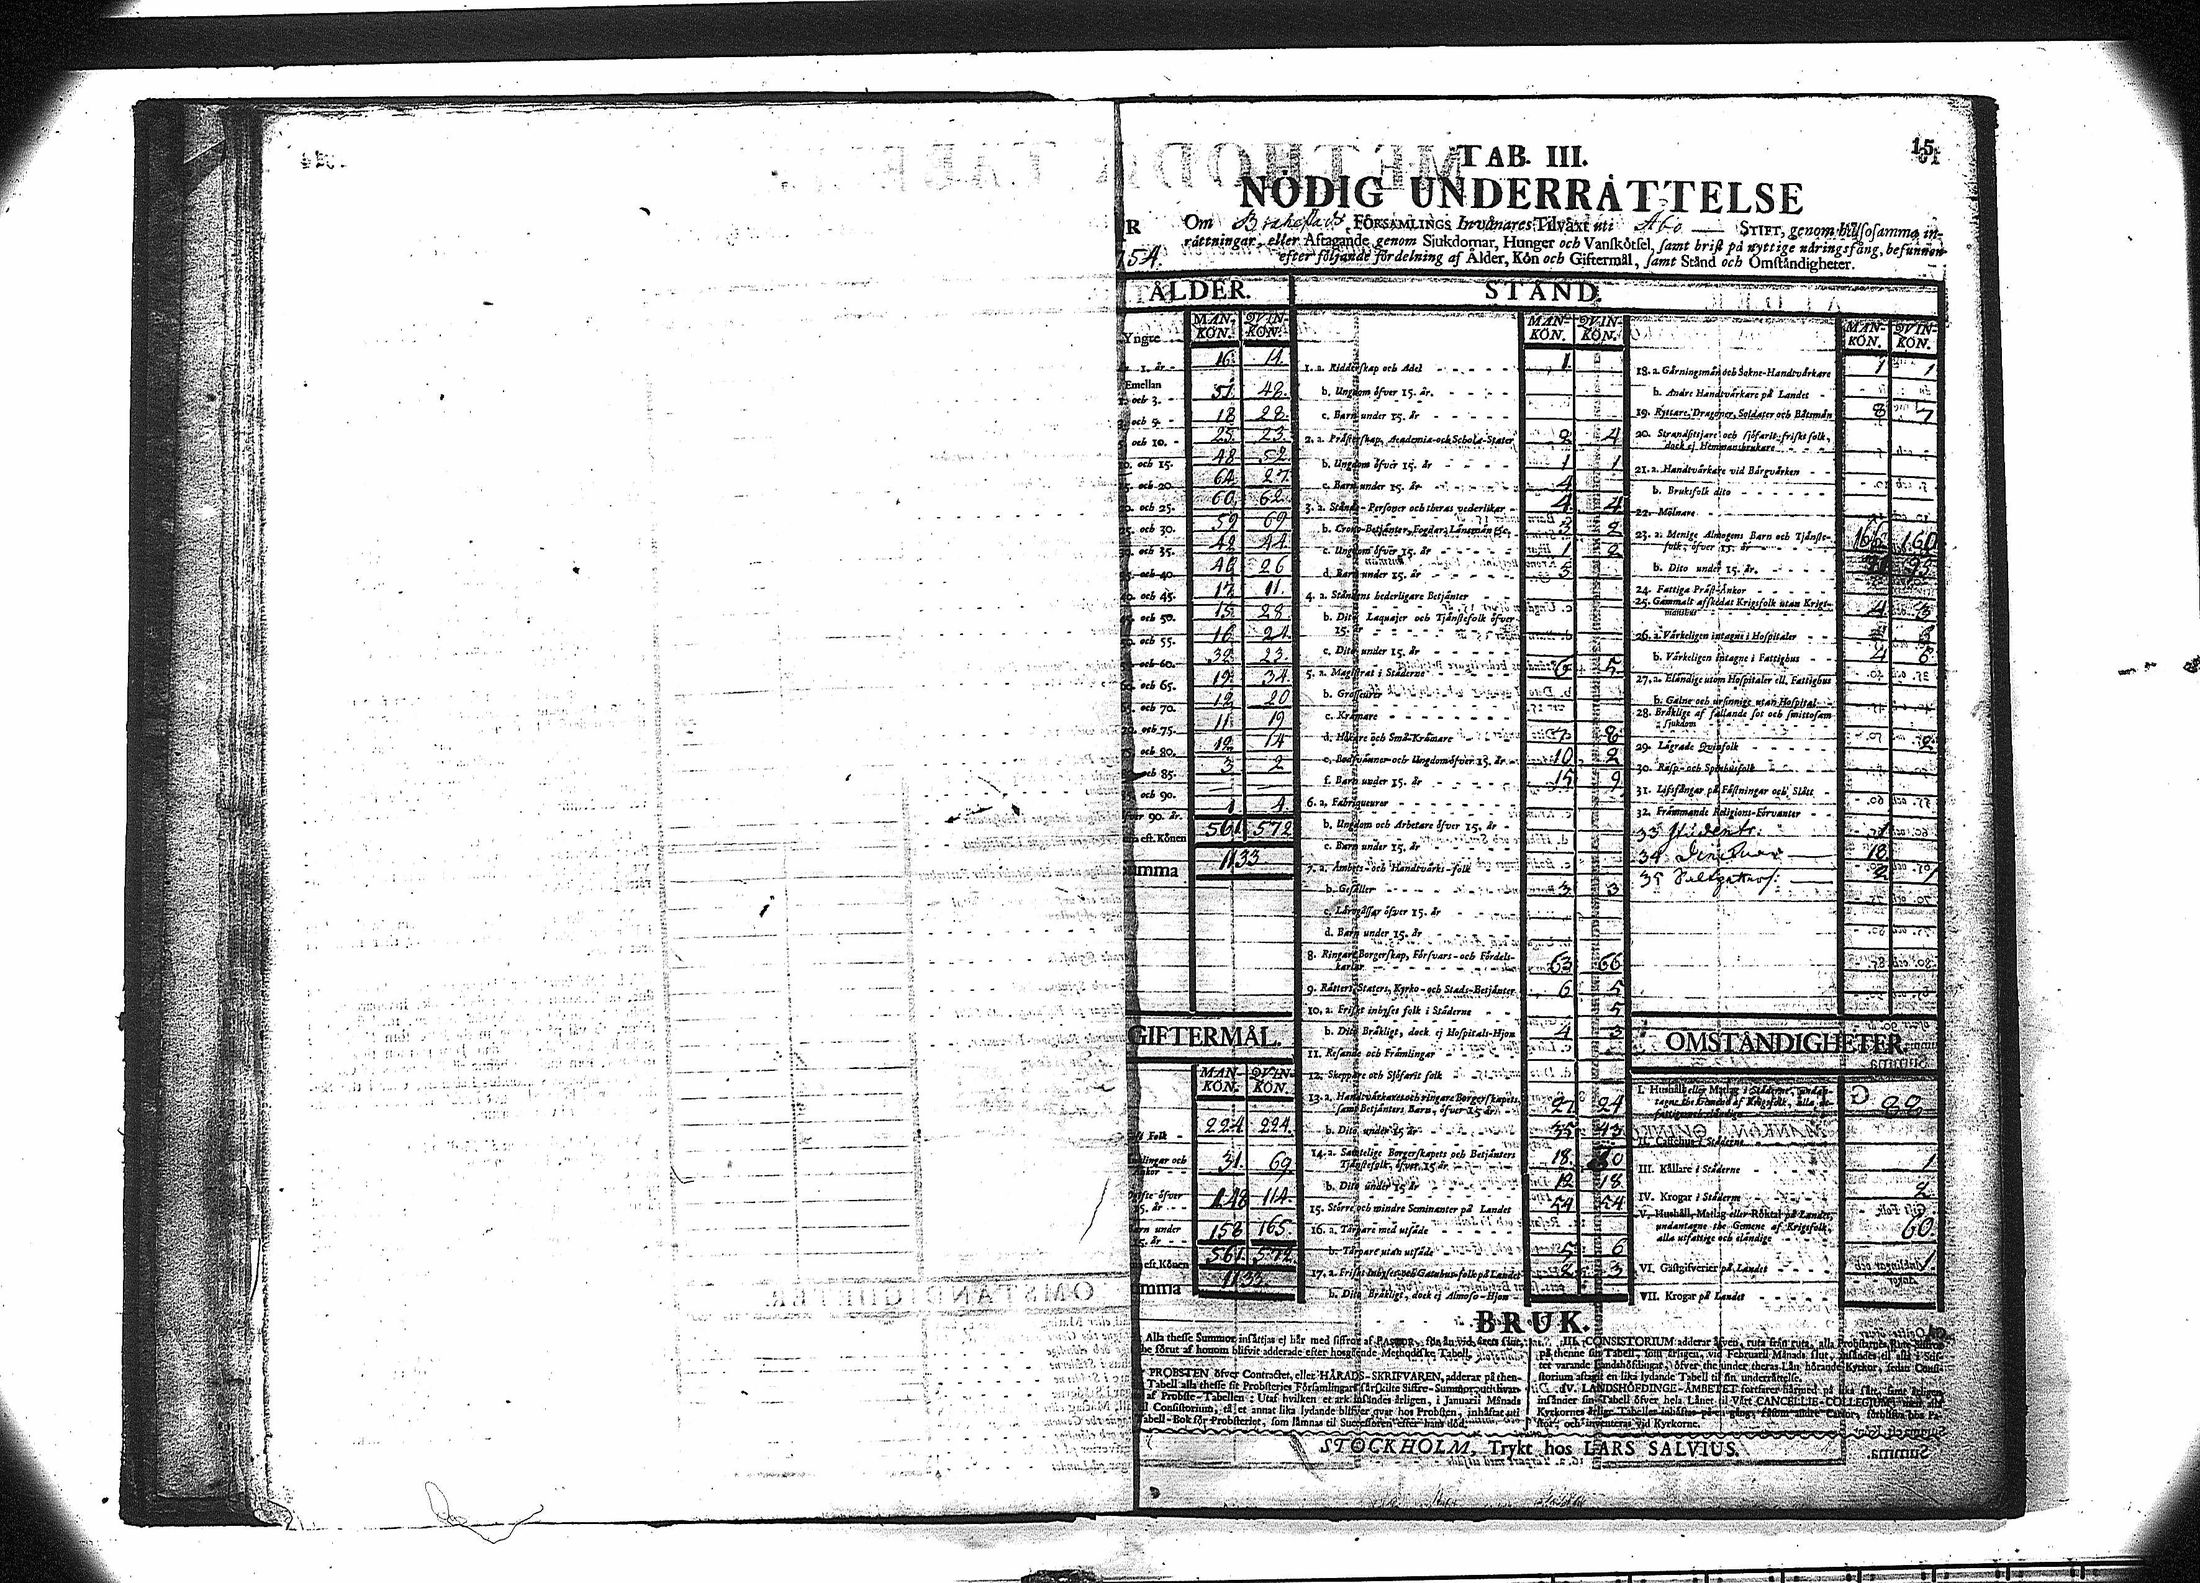 15.
TAB. III.
NÖDIG UNDERRÄTTELSE
R Om FÖRSAMLINGS Invånares Tilväxt uti Åbo — STIFT, genom hälsosamma in-
rättningar, eller Aftagande genom Sjukdomar, Hunger och Vanskötsel, samt brist på nyttige näringsfång, befunnen
54. efter följande fördelning af Ålder, Kön och Giftermål, samt Stånd och Omständigheter.
ÅLDER.
MAN-KÖN. QVIN-KÖN.
Yngre
1. år - 16. 14.
Emellan
1. och 3. - 51. 48.
och 5. - 18 28.
och 10. - 25. 23.
10. och 15. 48 52
och 20. 64 27.
och 25. 60 62.
och 30. 59 69.
och 35. 42 44.
och 40. 40 26
och 45. 17 11.
och 50. 15. 28.
och 55. 16 24.
och 60. 32. 23.
och 65. 19. 34.
och 70. 12 20
och 75. 11. 19
och 80. 12 14
och 85. 3 2
och 90. — —
öfver 90. år. 1 4
eft. Könen 561. 572
Summa 1133
GIFTERMÅL.
MAN-KÖN. QVIN-KÖN.
Folk - 224 224.
Enklingar och
Änkor - 31. 69
Ogifte öfver
15. år - - 148 114.
Barn under
15. år - - 158 165.
eft. Könen 561. 572.
Summa 1133
STÅND.
MAN-KÖN. QVIN-KÖN.
1. a. Ridderskap och Adel 1.
b. Ungdom öfver 15. år.
c. Barn under 15. år
2. a. Prästerskap, Academia- och Schola-Stater 2 4
b. Ungdom öfver 15. år 1 1
c. Barn under 15. år 4
3. a. Stånds-Personer och theras vederlikar 4. 4
b. Crono-Betjänter, Fogdar, Länsmän &c. 3 2
c. Ungdom öfver 15. år 1 2
d. Barn under 15. år 5
4. a. Ståndens hederligare Betjänter
b. Dito Laquajer och Tjänstefolk öfver
15. år
c. Dito under 15. år
5. a. Magistrat i Städerne 6 5
b. Grosseurer
c. Krämare
d. Hökare och Små-Krämare 7 8
e. Bodsvänner och Ungdom öfver 15. år 10 2
f. Barn under 15. år 15 9
6. a. Fabriqueurer
b. Ungdom och Arbetare öfver 15. år
c. Barn under 15. år
7. a. Ämbets- och Handtvärks-folk
b. Gesäller 3 3
c. Lärogåssar öfver 15. år
d. Barn under 15. år
8. Ringare Borgerskap, Försvars- och Fördels-
karlar 63 66
9. Rätters Staters, Kyrko- och Stads-Betjänter 6 5
10. a. Friskt inhyses folk i Städerne 5
b. Dito Bräkligt, dock ej Hospitals-Hjon 4 3
11. Resande och Främlingar
12. Skeppare och Sjöfarit folk
13. a. Handtvärkares och ringare Borgerskapets,
samt Betjänters Barn, öfver 15 år. 27 24
b. Dito under 15 år 35 43
14. a. Samtelige Borgerskapets och Betjänters
Tjänstefolk, öfver 15 år 18
b. Dito under 15 år 12 18
15. Större och mindre Seminanter på Landet 54 54
16. a. Torpare med utsäde
b. Torpare utan utsäde 5 6
17. a. Friskt Inhyses- och Gatuhus-folk på Landet 2 3
b. Dito Bräkligt, dock ej Almoso-Hjon
MAN-KÖN. QVIN-KÖN.
18. a. Gärningsmän och Sokne-Handtvärkare 1 1
b. Andre Handtvärkare på Landet
19. Ryttare, Dragoner, Soldater och Båtsmän 8 7
20. Strandsittjare och sjöfarit, friskt folk,
dock ej Hemmansbrukare
21. a. Handtvärkare vid Bärgvärken
b. Bruksfolk dito
22. Mölnare
23. a. Menige Almogens Barn och Tjänste-
folk, öfver 15. år 166 160
b. Dito under 15. år. 95
24. Fattiga Präst-Änkor
25. Gammalt afskedat Krigsfolk utan Krigs-
manshus 4 3
26. a. Värkeligen intagne i Hospitaler
b. Värkeligen intagne i Fattighus 4 6
27. a. Eländige utom Hospitaler ell. Fattighus
b. Galne och ursinnige utan Hospital
28. Bräklige af fallande sot och smittosam
sjukdom
29. Lägrade Qvinfolk 2
30. Rasp- och Spinhusfolk
31. Lifsfångar på Fästningar och Slått
32. Främmande Religions-Förvanter
33 Studenter 1
34 18
35 2 1
OMSTÄNDIGHETER.
I. Hushåll eller Matlag i Städerne, undan-
tagne the Gemene af Krigsfolk, alla ut-
fattige och eländige 88
II. Caffehus i Städerne
III. Källare i Städerne 1
IV. Krogar i Städerne 2
V. Hushåll, Matlag eller Röktal på Landet,
undantagne the Gemene af Krigsfolk,
alla utfattige och eländige 60.
VI. Gästgifverier på Landet 1
VII. Krogar på Landet
BRUK.
Alla thesse Summor insättjas ej här med siffror af PASTOR, för än vid årets slut,
the förut af honom blifvit adderade efter hosgående Methodiske Tabell.
PROBSTEN öfver Contractet, eller HÄRADS-SKRIFVAREN, adderar på then-
Tabell alla thesse sit Probsteries Församlingars särskilte Siffre-Summor
af Probste-Tabellen: Utaf hvilken et ark insändes årligen, i Januarii Månads
Consistorium, et annat lika lydande blifver qvar hos Probsten, inhäftat uti
Tabell-Bok för Probsteriet, som lämnas til Successoren efter hans död.
III. CONSISTORIUM adderar äfven, ruta från ruta, alla Probstarnes
på thenne sin Tabell, som årligen, vid Februarii Månads slut, insändes til
ter varande Landshöfdingar, öfver the under theras Län hörande Kyrkor, sedan Consi-
storium aftagit en lika lydande Tabell til sin underrättelse.
IV. LANDSHÖFDINGE-ÄMBETET fortfarer härmed på lika sätt, samt årligen
insänder sin Tabell öfver hela Länet til Vårt CANCELLIE-COLLEGIUM
STOCKHOLM, Trykt hos LARS SALVIUS.